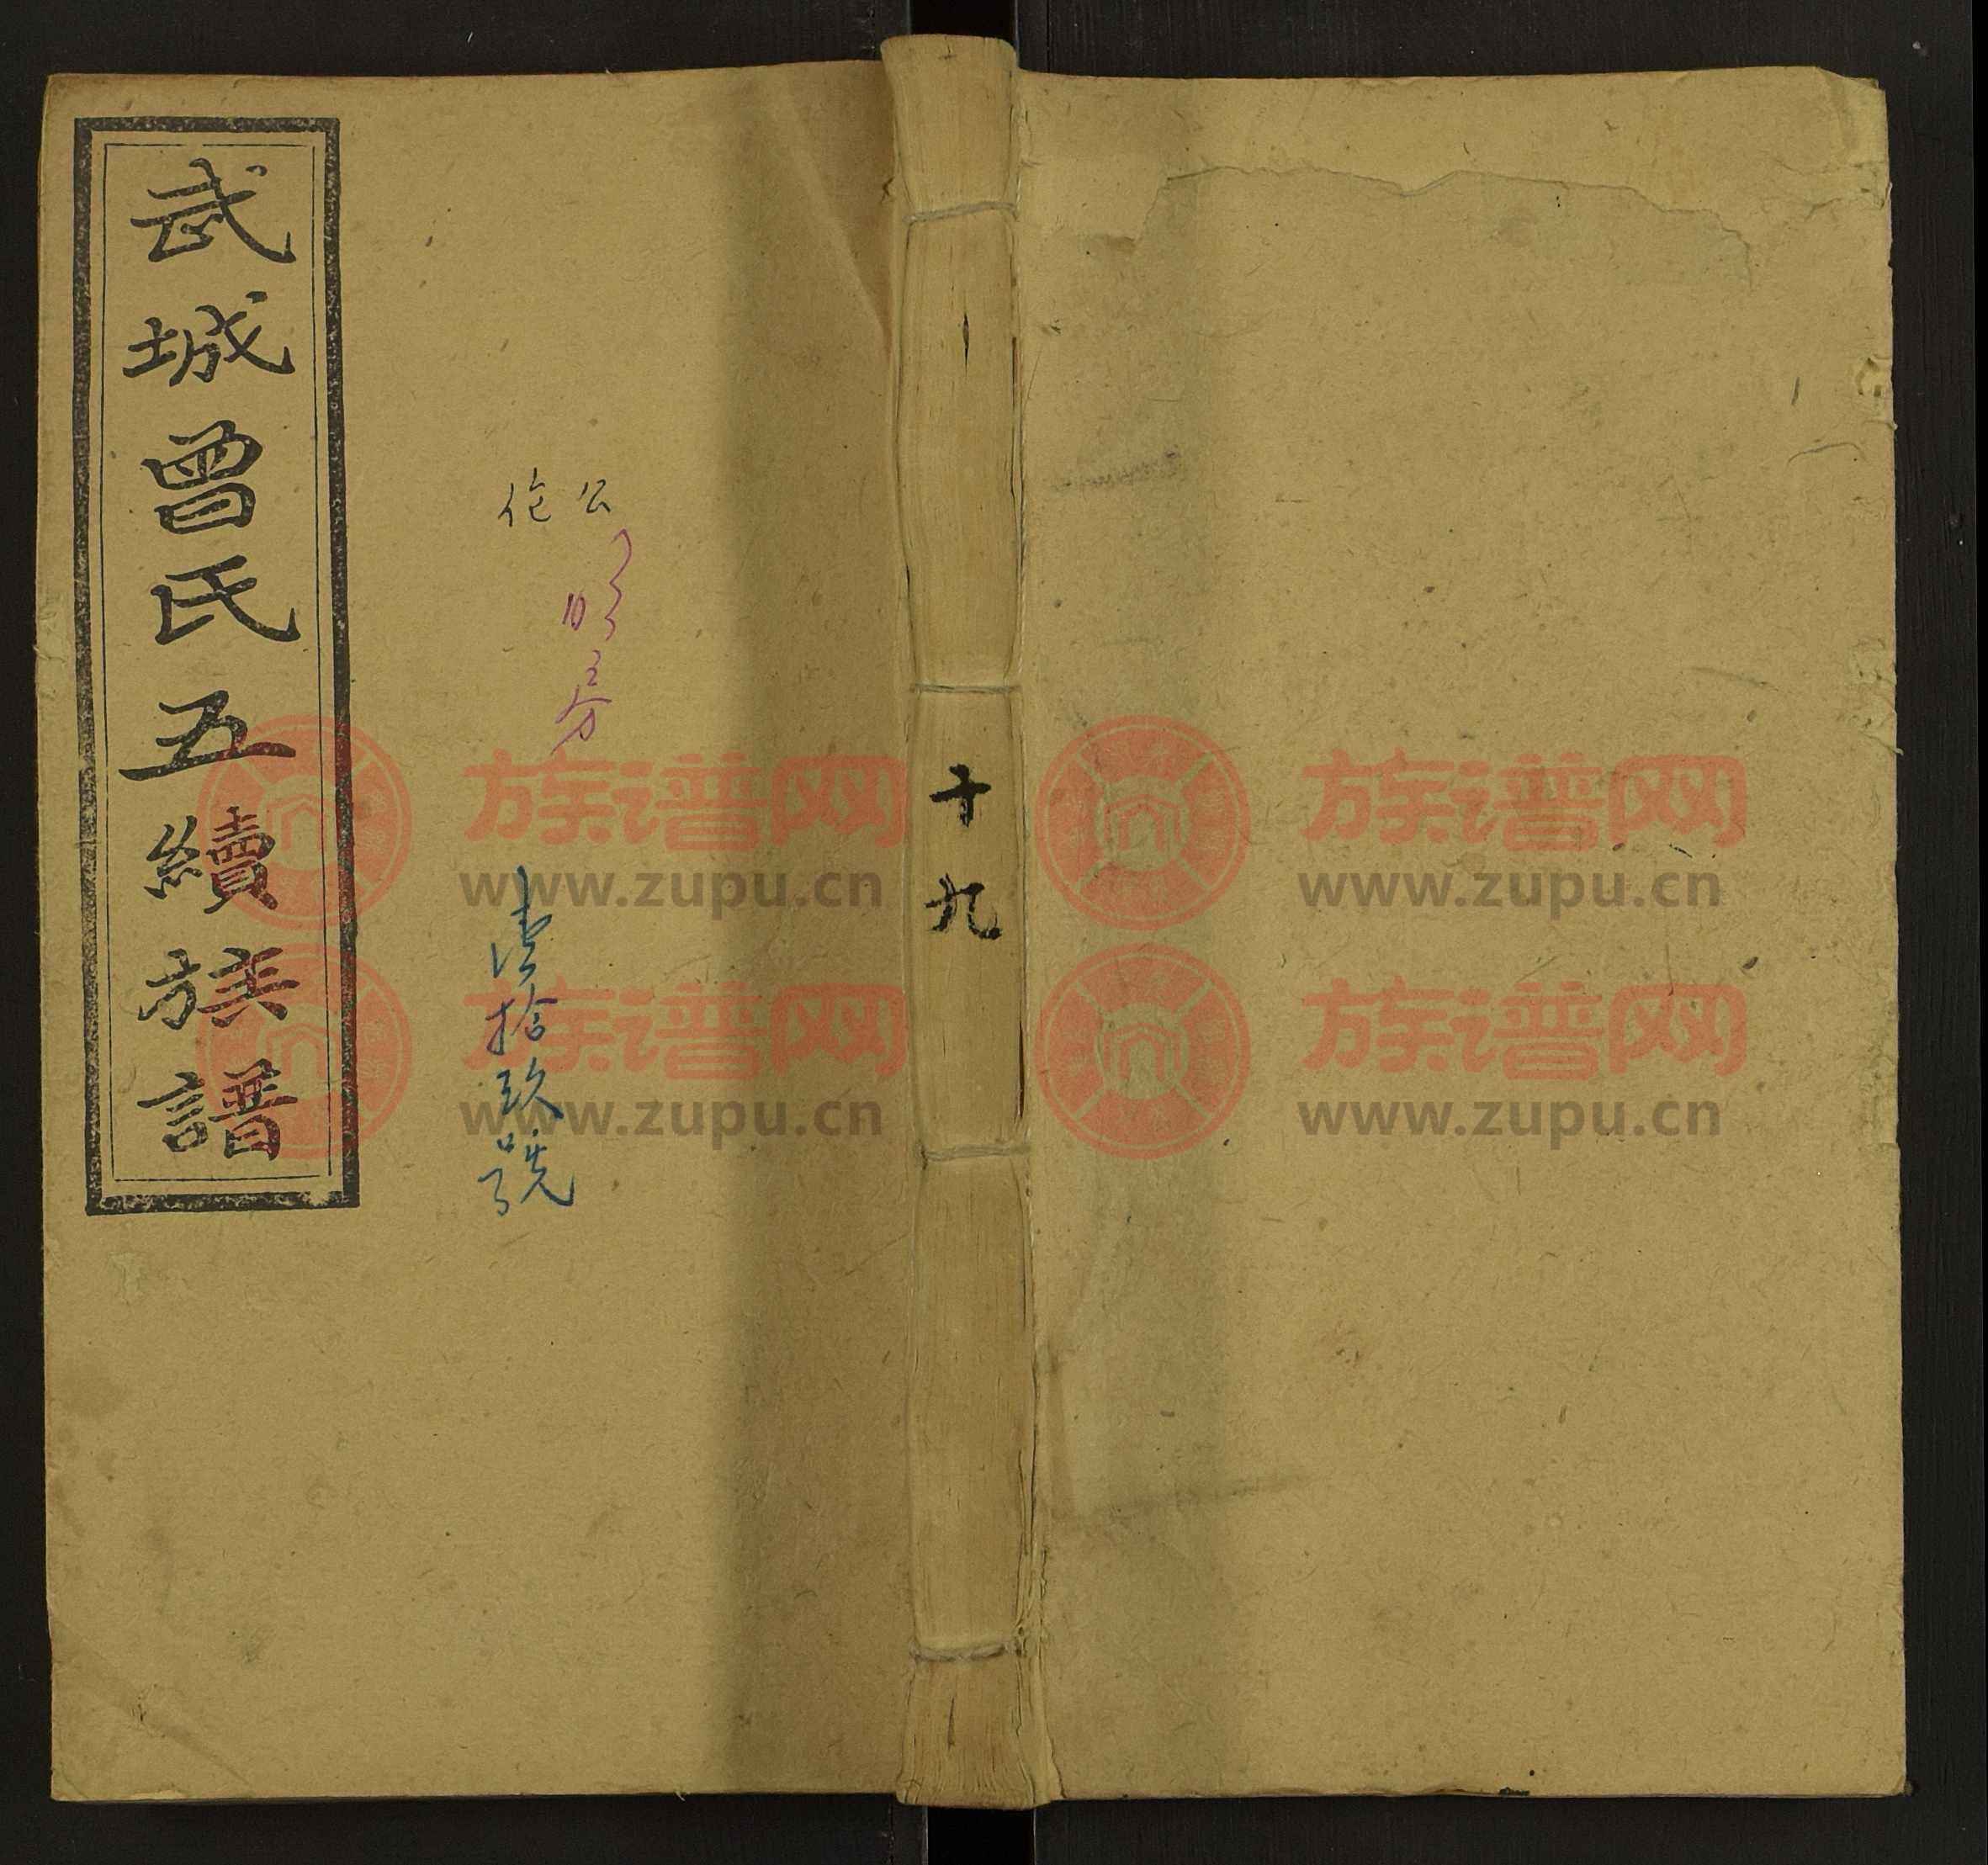 武城曾氏五續族譜
公
房
壹拾玖號
十九
族谱网
www.zupu.cn
族谱网
www.zupu.cn
族谱网
www.zupu.cn
族谱网
www.zupu.cn